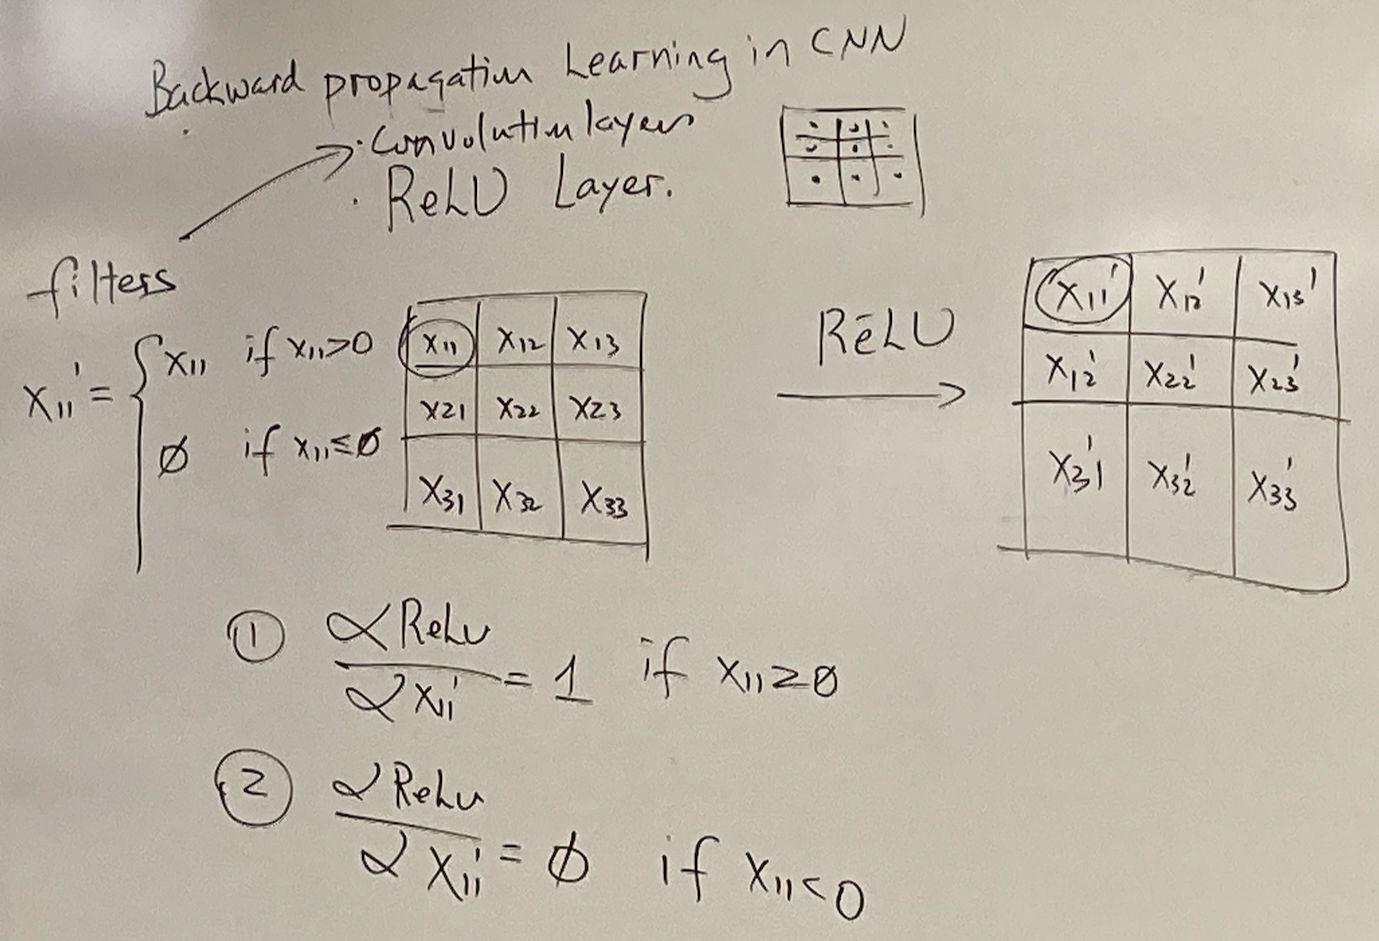 Backward propagation Learning in CNN
· Convolution layers
· ReLU Layer.
filters
x₁₁' = { x₁₁ if x₁₁>0
∅ if x₁₁≤∅
x₁₁ x₁₂ x₁₃
x₂₁ x₂₂ x₂₃
x₃₁ x₃₂ x₃₃
ReLU
x₁₁' x₁₂' x₁₃'
x₁₂' x₂₂' x₂₃'
x₃₁' x₃₂' x₃₃'
① ∂ReLu / ∂x₁₁' = 1 if x₁₁≥∅
② ∂ReLu / ∂x₁₁' = ∅ if x₁₁<0